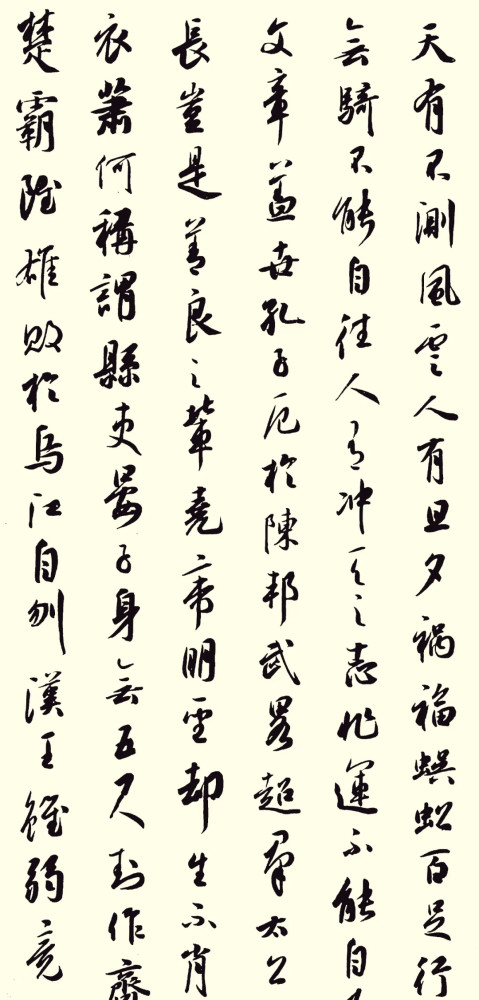 天有不測風雲人有旦夕禍福蜈蚣百足行
無騎不能自往人有冲天之志非運不能自
文章蓋世孔子厄於陳邦武畧超羣太公
長豈是善良之輩堯帝明聖却生不肖
衣蕭何稱謂縣吏晏子身無五尺封作齊
楚霸雖雄敗於烏江自刎漢王雖弱竟